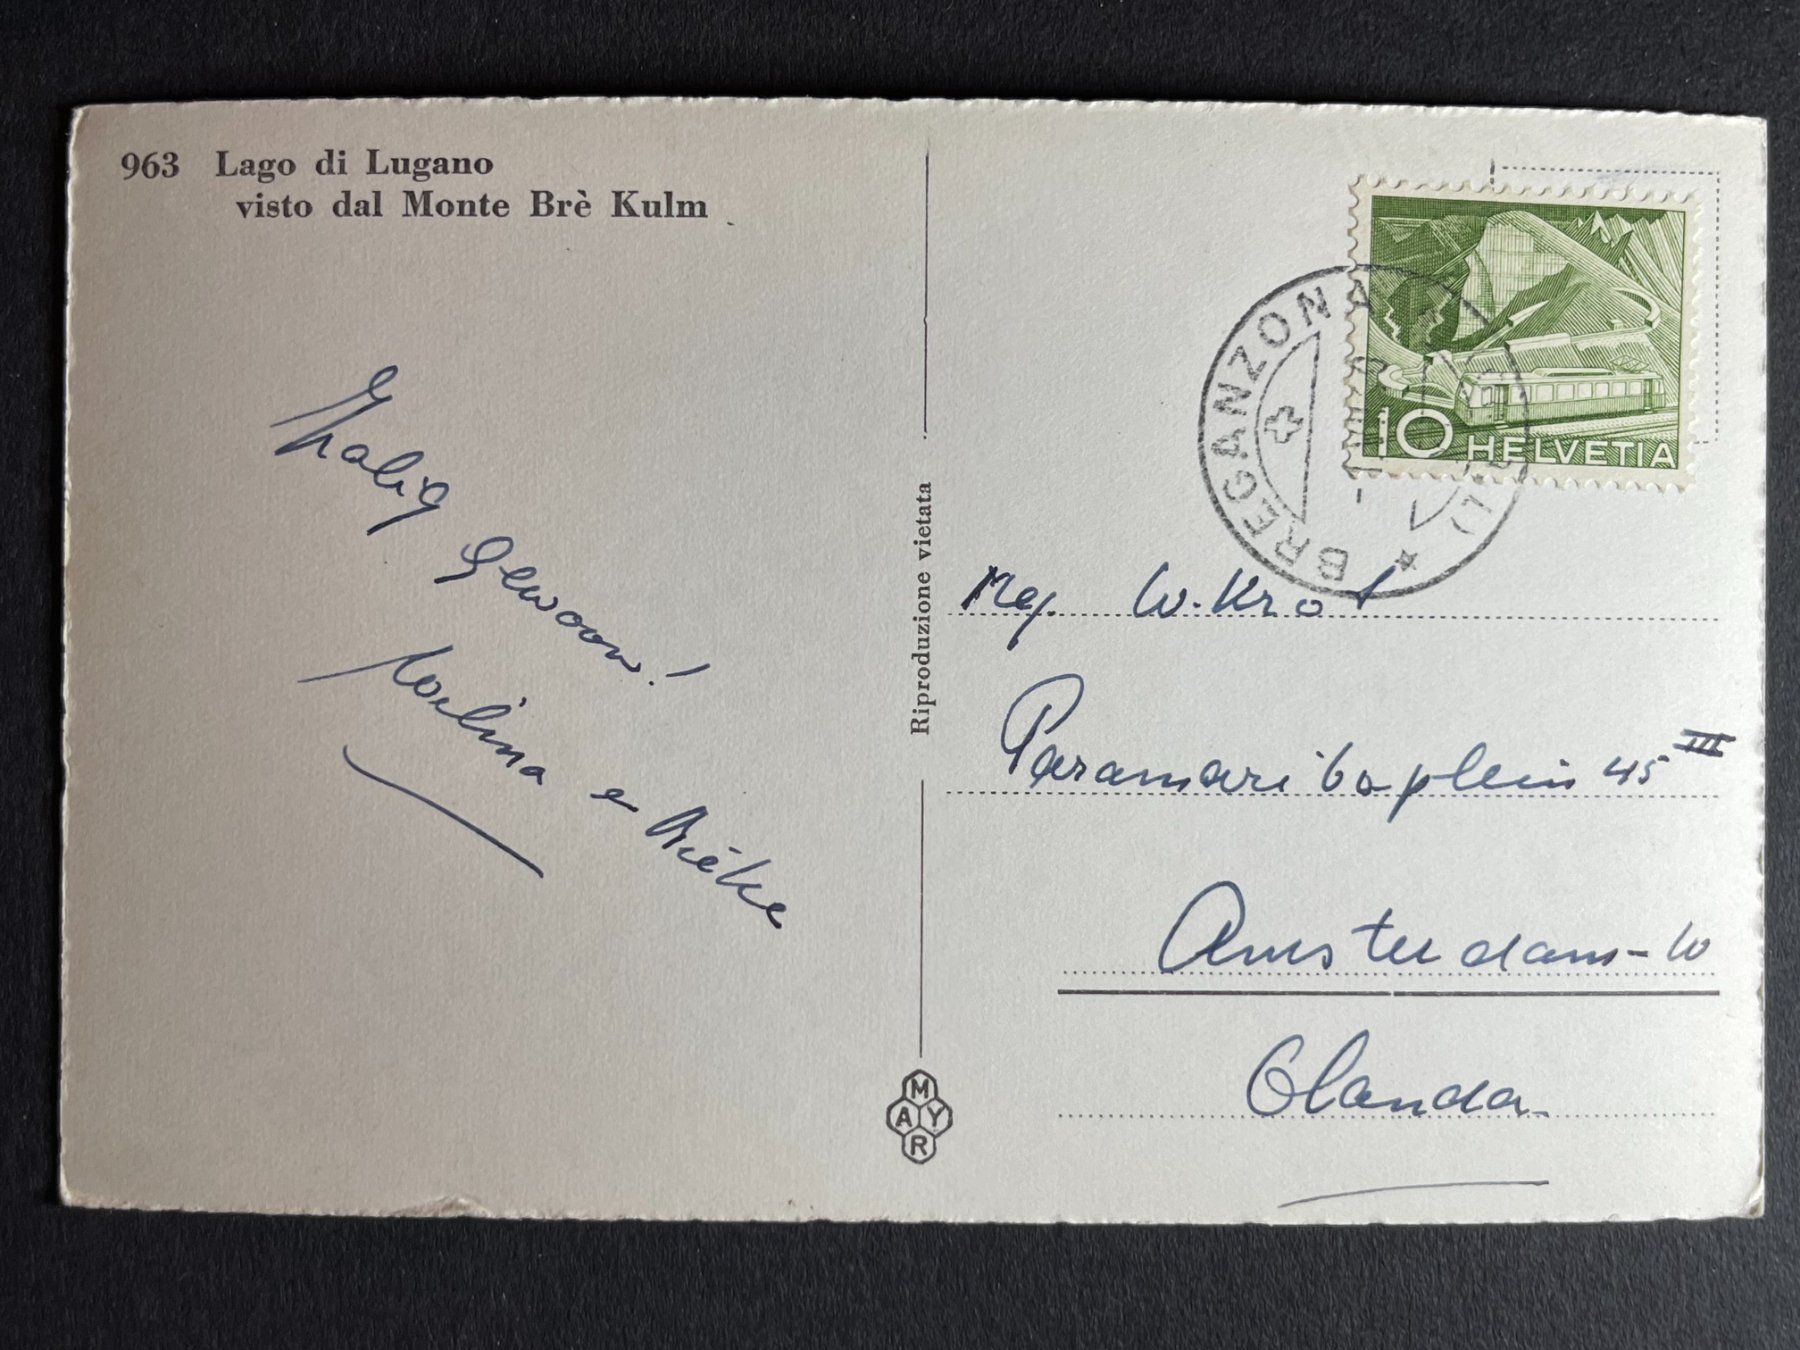 963 Lago di Lugano
visto dal Monte Brè Kulm
Zalig gewoon!
e Rieke
Riproduzione vietata
MAYR
10 HELVETIA
BREGANZONA
Mej. W. Krol
Paramariboplein 45 III
Amsterdam-W
Olanda